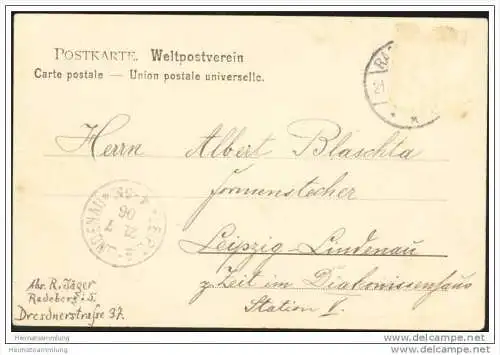 POSTKARTE. Weltpostverein
Carte postale — Union postale universelle.
RA
21
* M
Herrn Albert Blaschta
Formenstecher
Leipzig-Lindenau
z. Zeit im Diakonissenhaus
Station I.
LEIPZIG-LINDENAU
22 7
06
Abs. R. Jäger
Radeberg i. S.
Dresdnerstraße 37.
Heimatsammlung
www.heimatsammlung.de